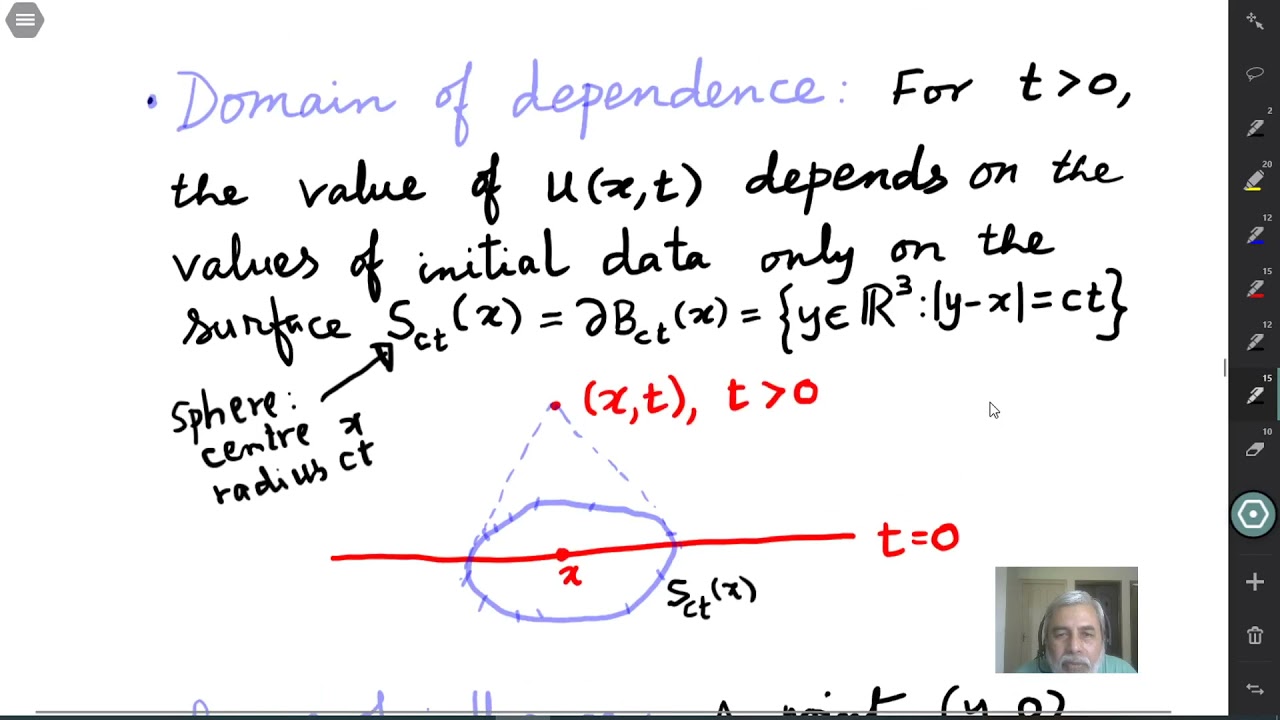 • Domain of dependence: For t>0,
the value of u(x,t) depends on the
values of initial data only on the
surface S_ct(x) = ∂B_ct(x) = {y∈ℝ³:|y-x|=ct}
Sphere:
centre x
radius ct
(x,t), t>0
t=0
x
S_ct(x)
A point (y,0)
2
20
12
15
12
15
10